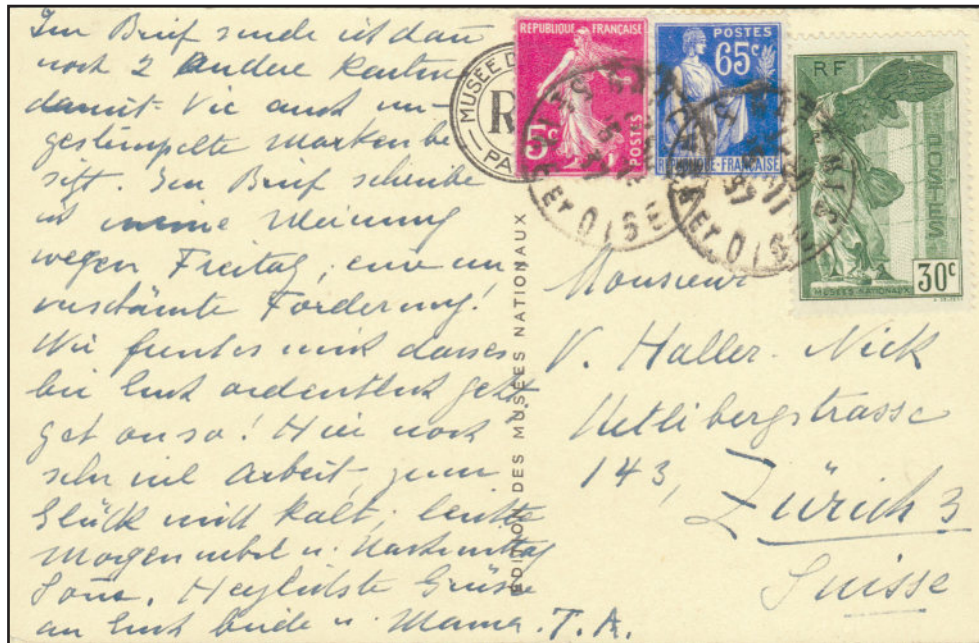 Im Brief sende ich dan
noch 2 Andere Karten
damit Vic auch un-
gestempelte Marken be
sizt. Im Brief schreibe
ich meine Meinung
wegen Freitag, eine un
verschämte Forderung!
Wir freuten uns dasses
bei Euch ordentlich geht
get on so! Hier noch
sehr viel Arbeit, zum
Glück nicht kalt, leichte
Morgennebel u. Nachmittag
Sonne. Herzlichste Grüsse
an Euch beide u. Mama. T. A.
EDITION DES MUSÉES NATIONAUX
MUSÉE D
R
PA
REPUBLIQUE FRANÇAISE
5c
POSTES
POSTES
65c
REPUBLIQUE-FRANÇAISE
RF
POSTES
MUSÉES NATIONAUX
30c
ET OISE
ET OISE
Monsieur
V. Haller-Nick
Uetlibergstrasse
143,
Zürich 3
Suisse